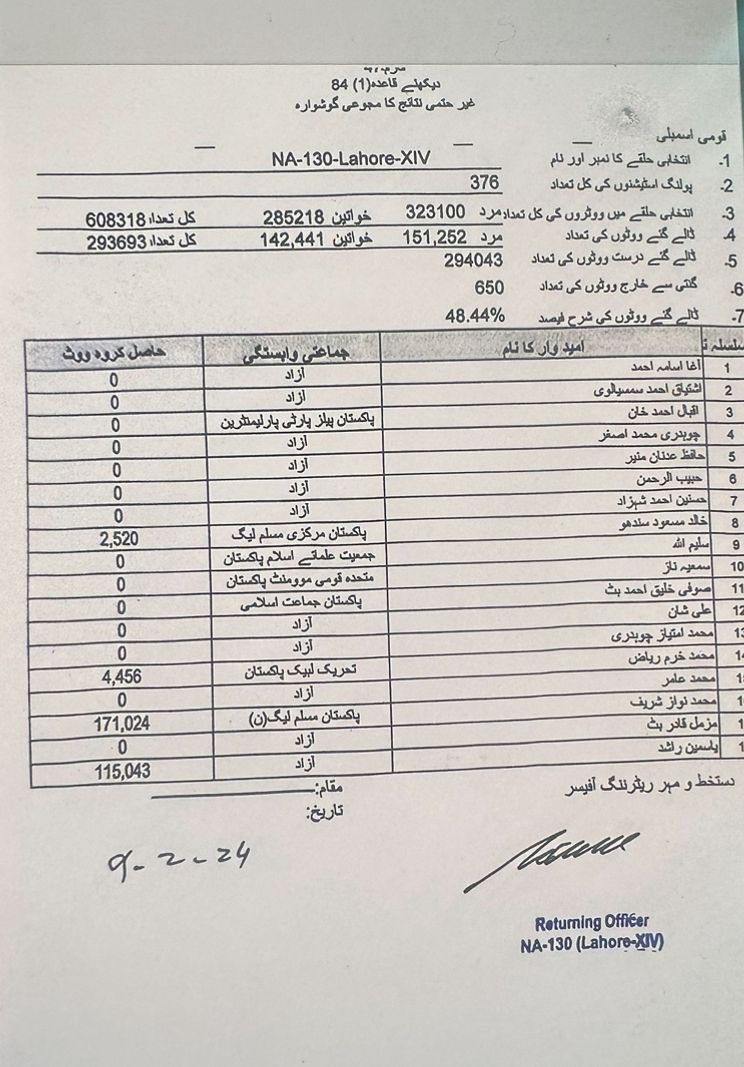 دیکھئے قاعدہ(1) 84
غیر حتمی نتائج کا مجوعی گوشوارہ
قومی اسمبلی
1. انتخابی حلقے کا نمبر اور نام NA-130-Lahore-XIV
2. پولنگ اسٹیشنوں کی کل تعداد 376
3. انتخابی حلقے میں ووٹروں کی کل تعداد مرد 323100 خواتین 285218 کل تعداد 608318
4. ڈالے گئے ووٹوں کی تعداد مرد 151,252 خواتین 142,441 کل تعداد 293693
5. ڈالے گئے درست ووٹوں کی تعداد 294043
6. گنتی سے خارج ووٹوں کی تعداد 650
7. ڈالے گئے ووٹوں کی شرح فیصد 48.44%
سلسلہ امید وار کا نام جماعتی وابستگی حاصل کردہ ووٹ
1 آغا اسامہ احمد آزاد 0
2 اشتیاق احمد سمسیالوی آزاد 0
3 اقبال احمد خان پاکستان پیپلز پارٹی پارلیمنٹرین 0
4 چوہدری محمد اصغر آزاد 0
5 حافظ عدنان منیر آزاد 0
6 حبیب الرحمن آزاد 0
7 حسنین احمد شہزاد آزاد 0
8 خالد مسعود سندھو پاکستان مرکزی مسلم لیگ 2,520
9 سلیم اللہ جمعیت علمائے اسلام پاکستان 0
10 سمعیہ ناز متحدہ قومی موومنٹ پاکستان 0
11 صوفی خلیق احمد بٹ پاکستان جماعت اسلامی 0
12 علی شان آزاد 0
13 محمد امتیاز چوہدری آزاد 0
1 محمد خرم ریاض تحریک لبیک پاکستان 4,456
1 محمد عامر آزاد 0
1 محمد نواز شریف پاکستان مسلم لیگ(ن) 171,024
1 مزمل قادر بٹ آزاد 0
1 یاسمین راشد آزاد 115,043
دستخط و مہر ریٹرننگ آفیسر
مقام:
تاریخ:
9-2-24
Returning Officer
NA-130 (Lahore-XIV)